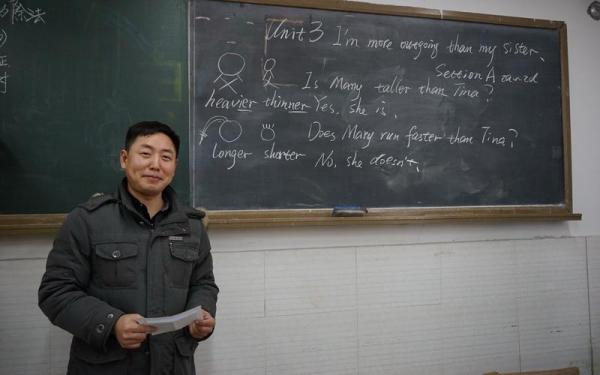 的除法
Unit 3 I'm more outgoing than my sister.
Section A 2a-2d
Is Mary taller than Tina?
heavier thinner Yes, she is.
Does Mary run faster than Tina?
longer shorter No, she doesn't.